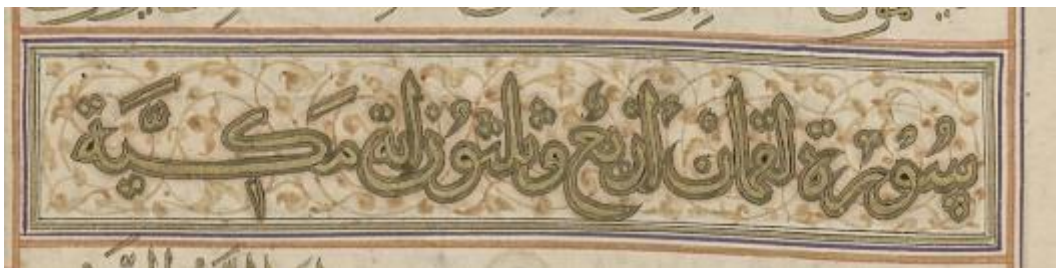 سُورَة لقمان اربع وثلثون اية مَكِّيَّة